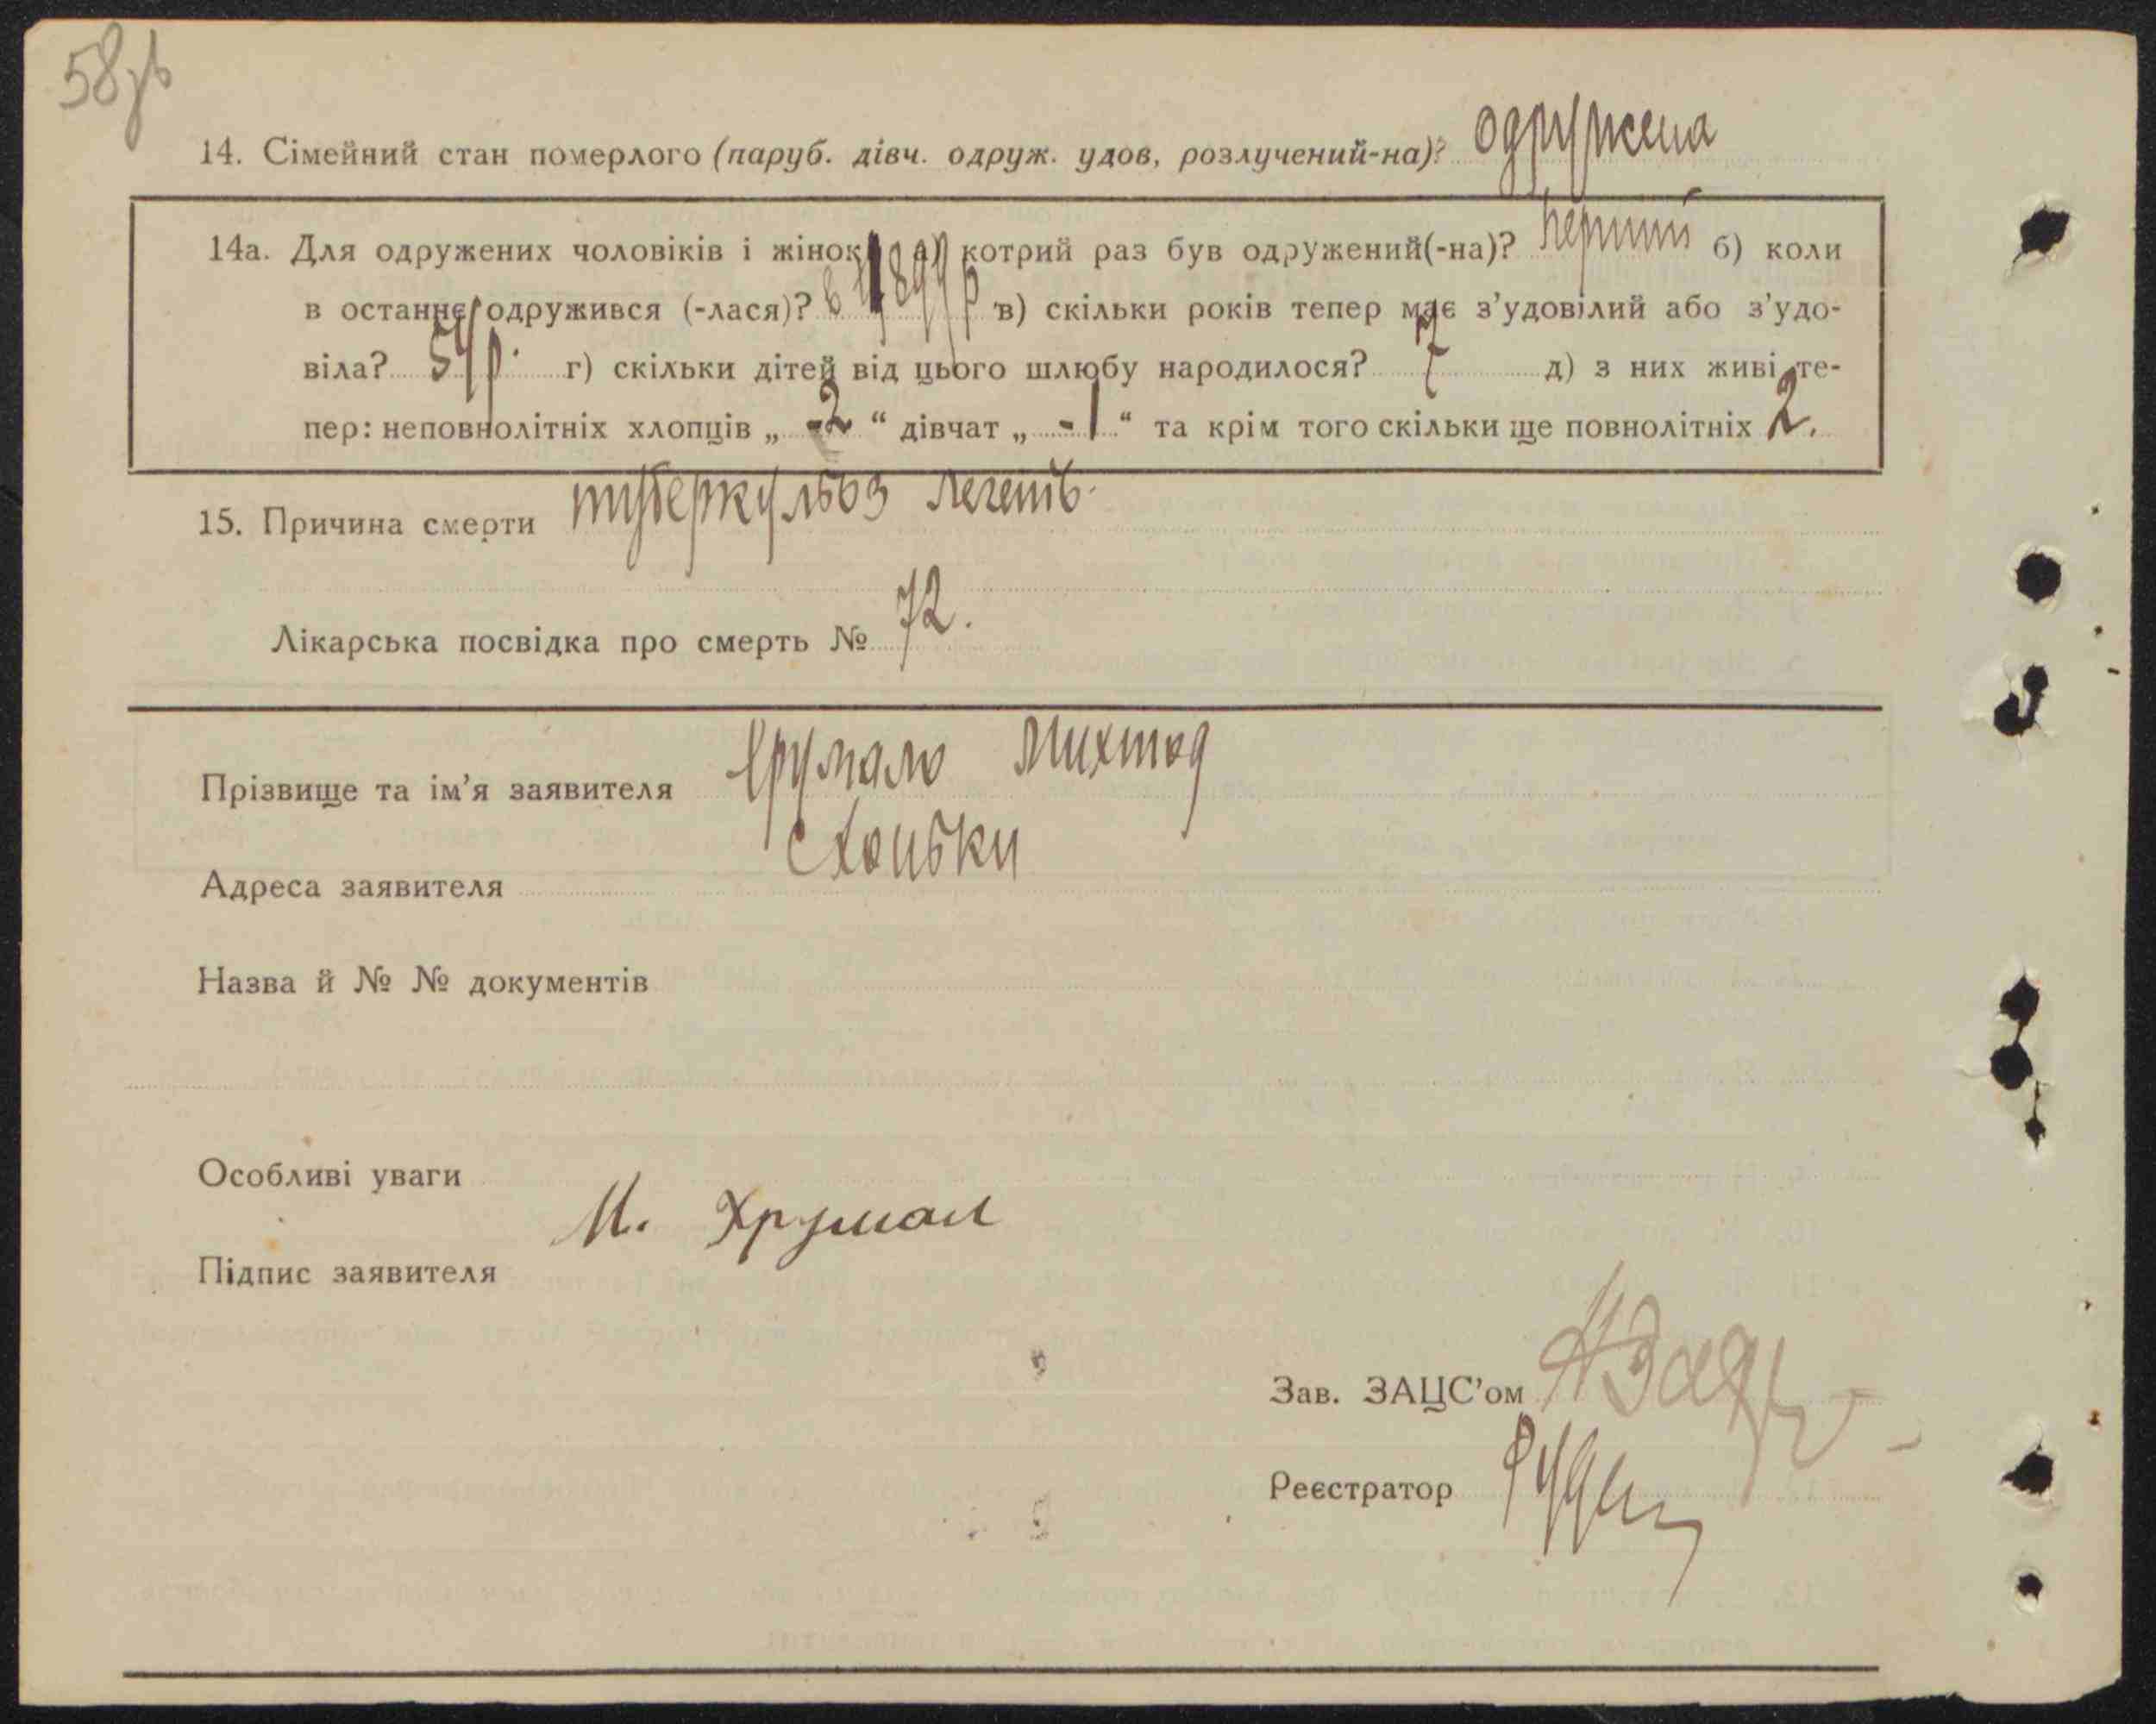 58зв
14. Сімейний стан померлого (паруб. дівч. одруж. удов, розлучений-на)? одружена
14а. Для одружених чоловіків і жінок а) котрий раз був одружений(-на)? перший б) коли
в останнє одружився (-лася)? в 1899 р в) скільки років тепер має з’удовілий або з’удо-
віла? 54 р. г) скільки дітей від цього шлюбу народилося? 7 д) з них живі те-
пер: неповнолітніх хлопців „ -2 “ дівчат „ -1 “ та крім того скільки ще повнолітніх 2.
15. Причина смерти туберкульоз легенів.
Лікарська посвідка про смерть № 72.
Прізвище та ім’я заявителя
Адреса заявителя с Хоньки
Назва й № № документів
Особливі уваги
Підпис заявителя М. Хрумал
Зав. ЗАЦС’ом
Реєстратор